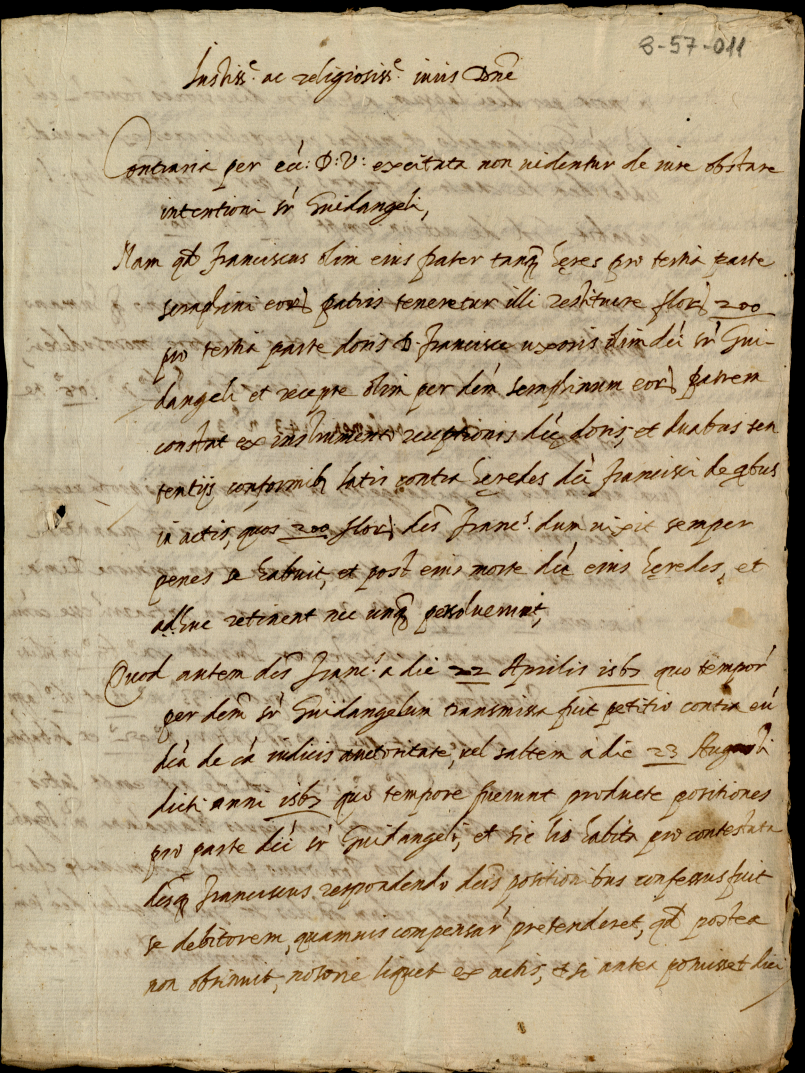 8-57-011
Iustiss.e ac religiosiss.e iuris Dne
Contraria per ecc: D: V: excitata non uidentur de iure obstare
intentioni sr Guidangeli,
Nam qd franciscus olim eius pater tanq heres pro tertia parte
seraphini eor patris teneretur illi restituere flor 200
pro tertia parte dotis D. francisce uxoris olim dci sr Gui-
dangeli et recepte olim per dcm seraphinum eor patrem
constat ex instrumento receptionis dce dotis, et duabus sen
tentijs conformib latis contra heredes dci francisci de qbus
in actis, quos 200 flor dcs franc.s dum uixit semper
penes se habuit, et post eius morte dci eius heredes, et
adhuc retinent nec unq persoluerunt,
Quod autem dcs franc.s a die 22 Aprilis quo tempor
per dcm sr Guidangelum transmissa fuit petitio contra eu
dca de ca iudicis auctoritate, uel saltem a die 23 Augusti
dicti anni quo tempore fuerunt producte positiones
pro parte dci sr Guidangeli, et sic lis habita pro contestata
dcsq franciscus respondendo dcis positionibus confessus fuit
se debitorem, quamuis compensar pretenderet, qd postea
non obtinuit, notorie liquet ex actis, et si antea potuisset dici